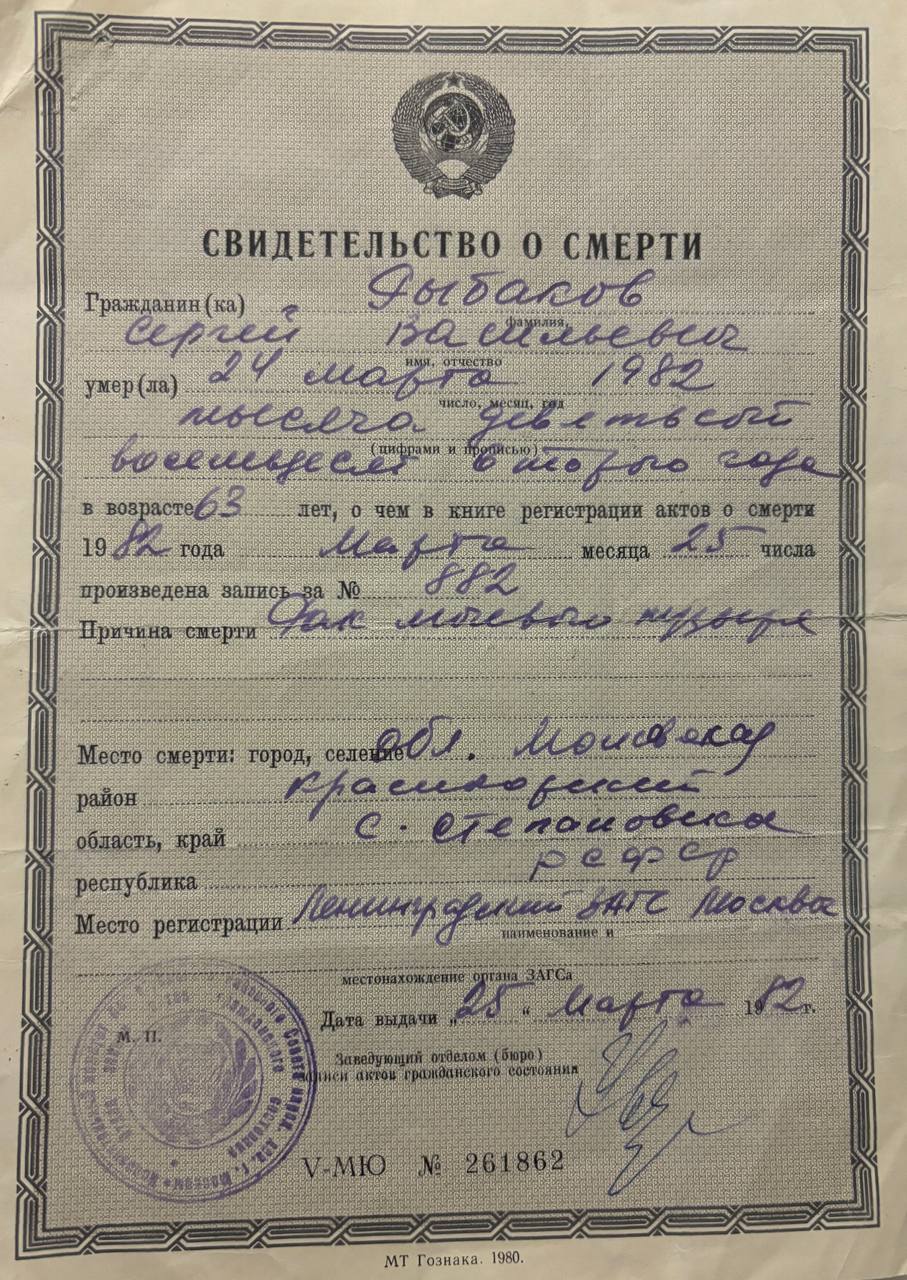 СВИДЕТЕЛЬСТВО О СМЕРТИ
Гражданин(ка) Рыбаков
фамилия,
Сергей Васильевич
имя, отчество
умер(ла) 24 марта 1982
число, месяц, год
тысяча девятьсот
(цифрами и прописью)
восемьдесят второго года
в возрасте 63 лет, о чем в книге регистрации актов о смерти
1982 года Марта месяца 25 числа
произведена запись за № 882
Причина смерти Рак мочевого пузыря
Место смерти: город, селение обл. Московская
район Красногорский
область, край с. Степановское
республика РСФСР
Место регистрации Ленинградский ЗАГС Москвы
наименование и
местонахождение органа ЗАГСа
Дата выдачи „25“ Марта 1982 г.
М. П.
Заведующий отделом (бюро)
записи актов гражданского состояния
V-МЮ № 261862
МТ Гознака. 1980.